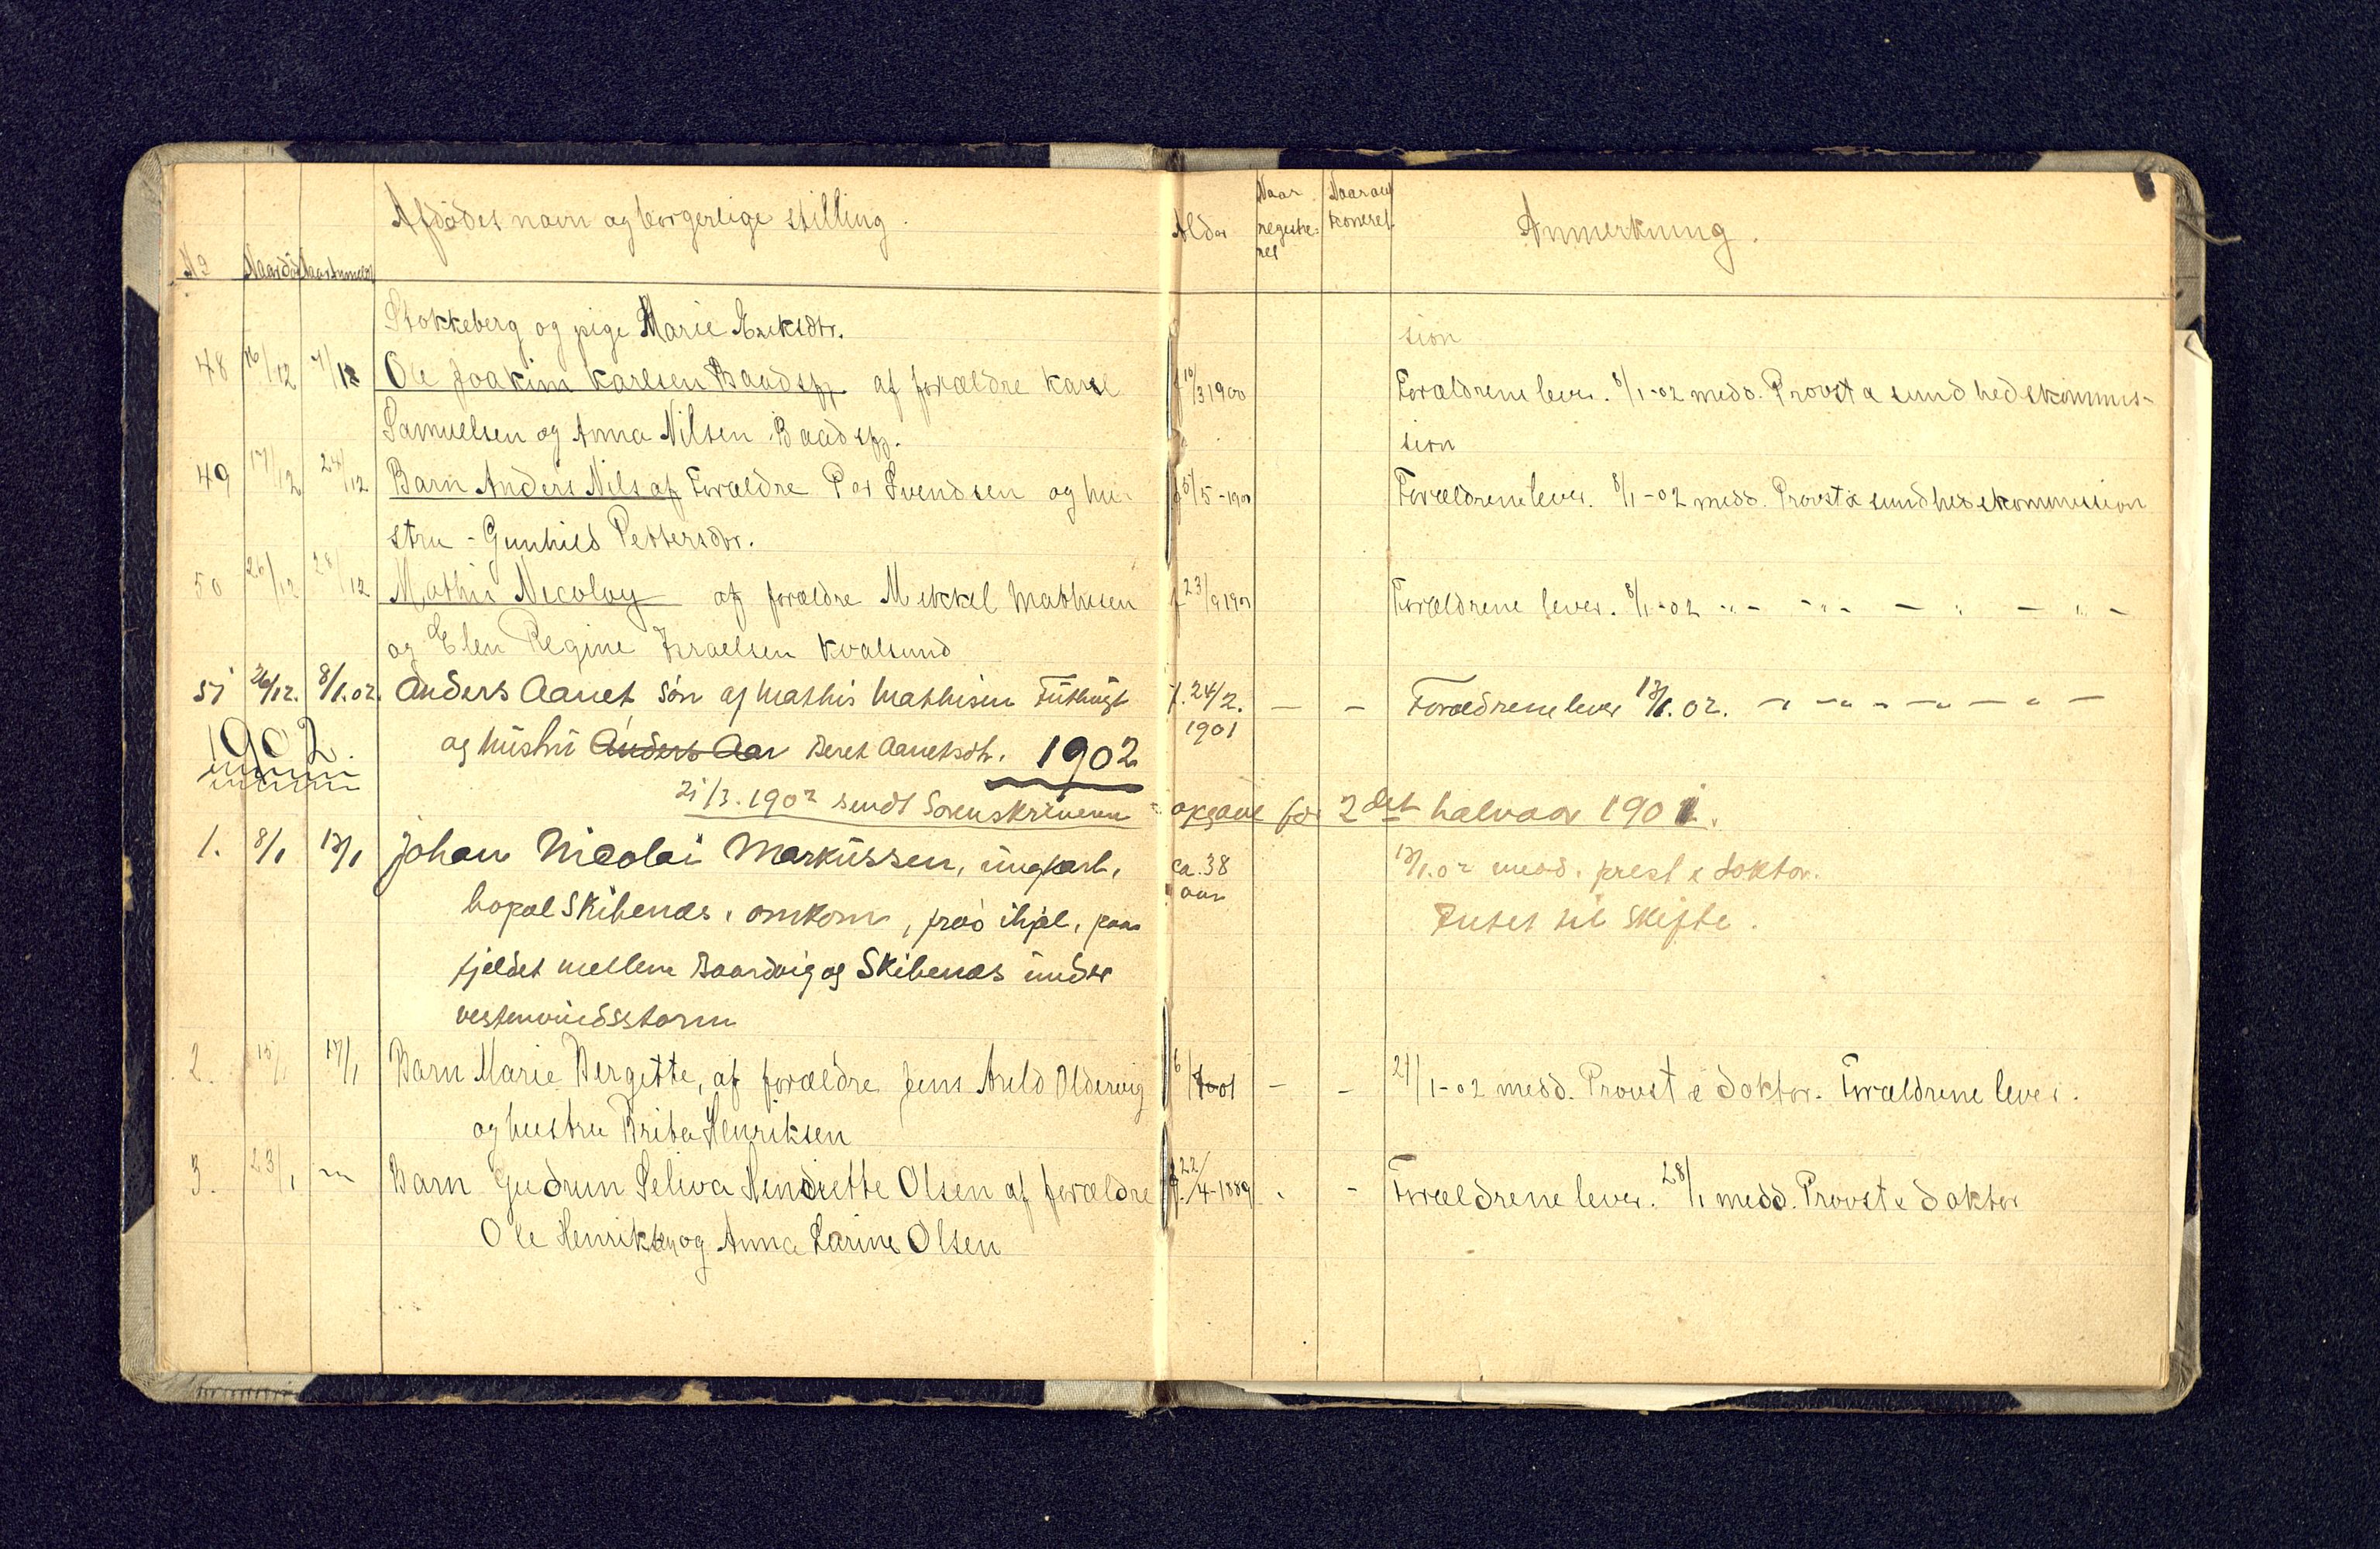 No Naar død Naar anmeldt Afdødes navn og borgerlige stilling. Alder Naar registre=ret Anmerkning.
Stokkeberg og pige Marie Eriksdtr. sion
48 16/12 Ole Joakim Karlsen Baadsfj. af forældre Karl f 10/3 1900 Forældrene lever. 8/1-02 medd. Provst & sundhedskommis-
Samuelsen og Anna Nilsen Baadsfj. sion
49 17/12 24/12 Barn Anders Nils af Forældre Per Svendsen og hu- Forældrene lever. 8/1-02 medd. Provst & sundhedskommission
stru - Gunhild Pettersdtr.
50 26/12 28/12 Mathis Nicolay af forældre Mikkel Mathisen f 23/9 1901 Forældrene lever. 8/1-02 -"- -"- - " - " -
og Elen Regine Israelsen Kvalsund
51 26/12. 8/1.02. Anders Aanet søn af Mathis Mathisen f. 24/2. 1901 - - Forældrene lever 13/1.02. - " - " - " - " -
1902. og hustru Anders Aar Beret Aanetsdtr. 1902
21/3. 1902 sendt Sorenskriveren opgave for 2det halvaar 1901.
1. 8/1 13/1 Johan Nicolai Markussen, ungkarl, ca. 38 aar 13/1.02 medd. prest & doktor.
bopæl Skibenæs, omkom, frøs ihjel, paa Intet til skifte.
fjeldet mellem Baardvig og Skibenæs under
vestenvindsstorm
2. 15/1 17/1 Barn Marie Bergitte, af forældre Jens Arild Oldervig - - 21/1-02 medd. Provst & doktor. Forældrene lever.
og hustru Brita Henriksen
3. 23/1 Barn Gudrun Seliva Hendriette Olsen af forældre f. 22/4-1889 - - Forældrene lever. 28/1 medd. Provst & doktor
Ole Henriksen og Anna Karine Olsen